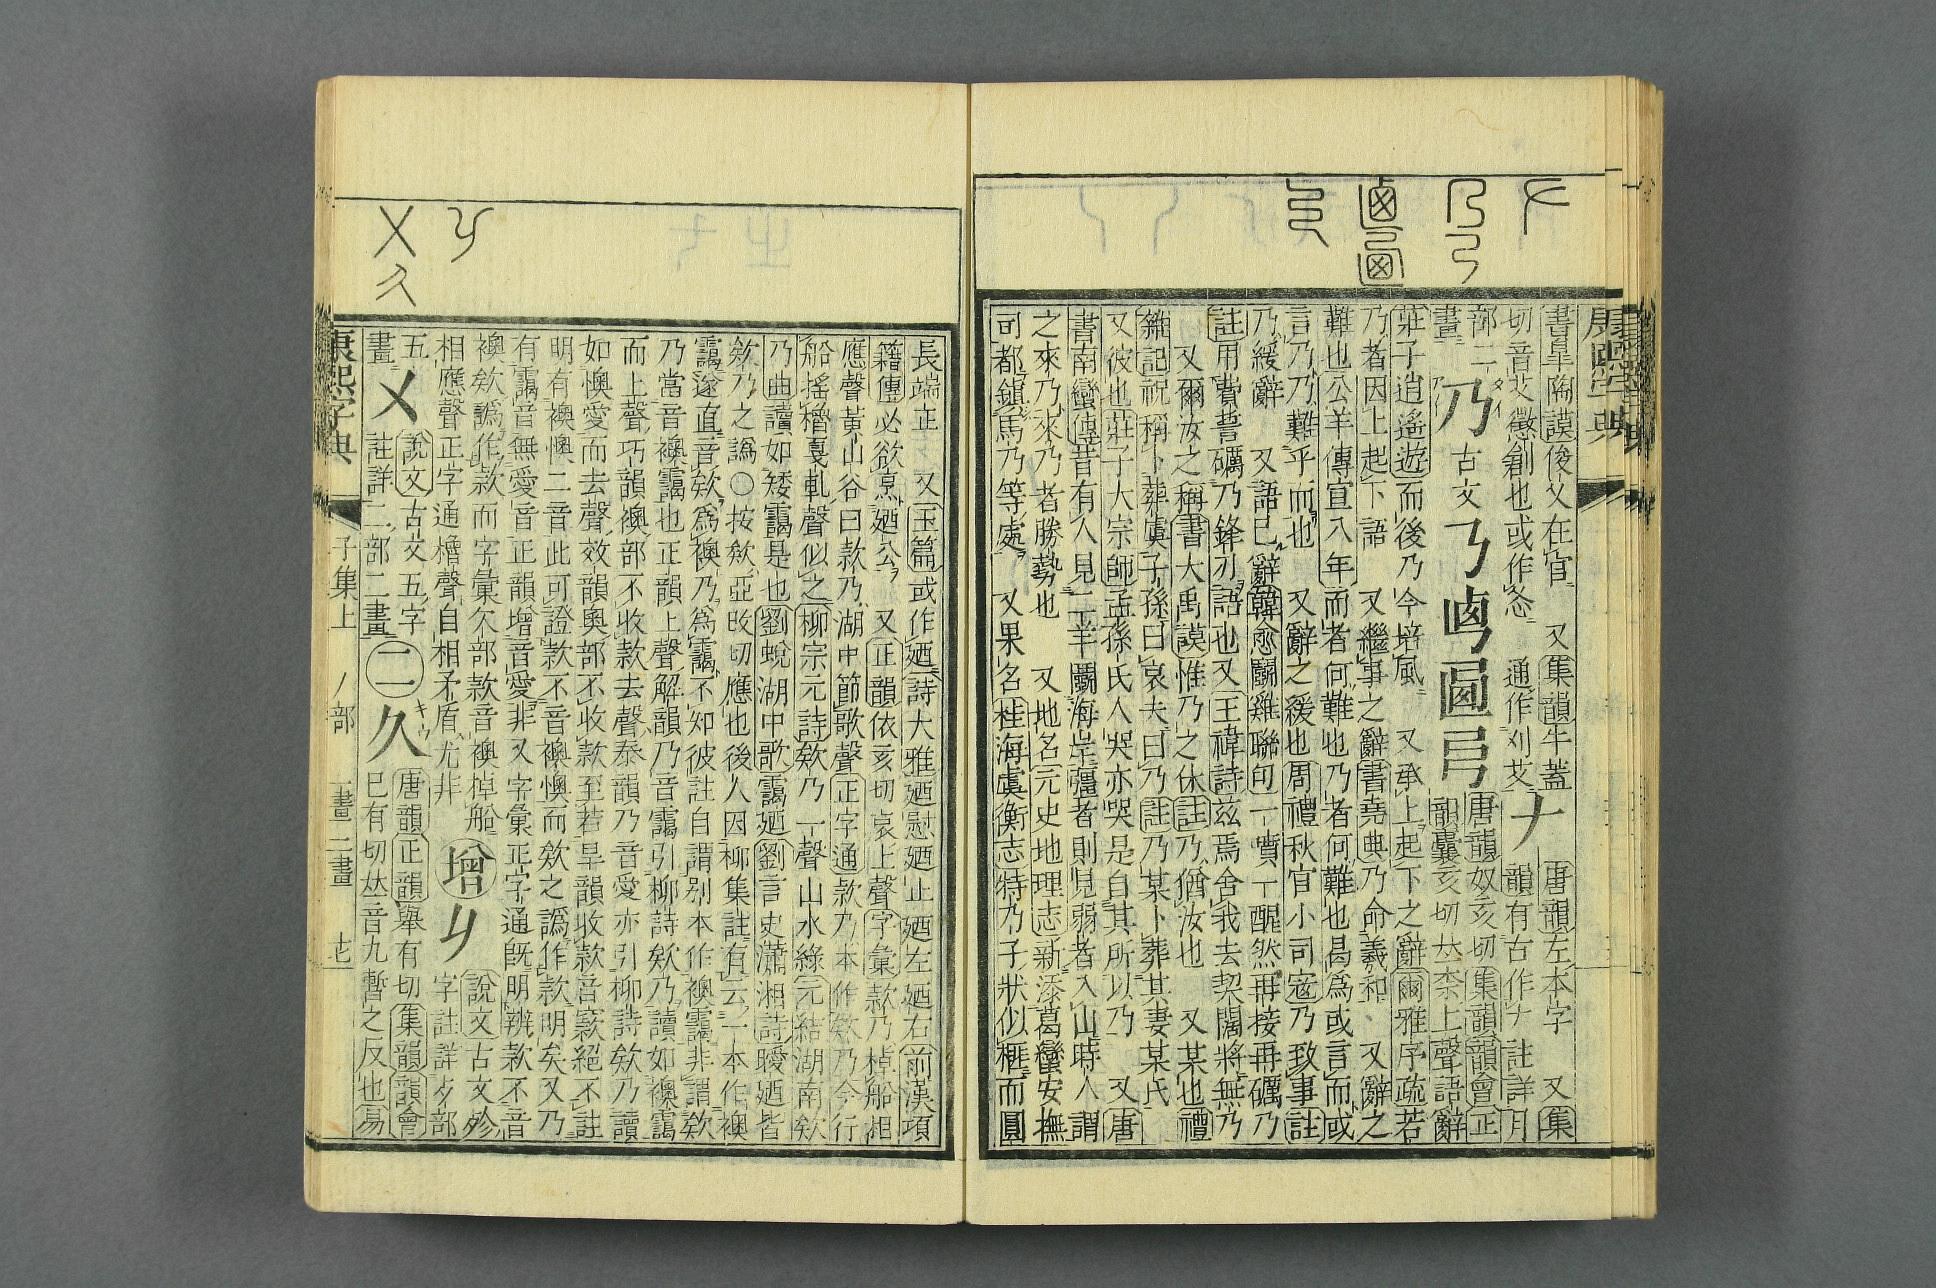 書皐陶謨俊乂在官 又集韻牛蓋
切音艾懲創也或作忞 通作刈艾
𠂇 唐韻左本字 又集
韻有古作𠂇註詳月
部二
畫
乃 古文 𠄎 𠧤 𠨅 弓
唐韻奴亥切集韻韻會正
韻囊亥切𠀤柰上聲語辭
莊子逍遙遊而後乃今培風 又承上起下之辭爾雅序疏若
乃者因上起下語 又繼事之辭書堯典乃命羲和 又辭之
難也公羊傳宣八年而者何難也乃者何難也曷爲或言而或
言乃乃難乎而也 又辭之緩也周禮秋官小司寇乃致事註
乃緩辭 又語已辭韓愈鬭雞聯句一噴一醒然再接再礪乃
註用費誓礪乃鋒刃語也又王禕詩茲焉舍我去契闊將無乃
又爾汝之稱書大禹謨惟乃之休註乃猶汝也 又某也禮
雜記祝稱卜葬虞子孫曰哀夫曰乃註乃某卜葬其妻某氏
又彼也莊子大宗師孟孫氏人哭亦哭是自其所以乃 又唐
書南蠻傳昔有人見二羊鬭海岸彊者則見弱者入山時人謂
之來乃來乃者勝勢也 又地名元史地理志新添葛蠻安撫
司都鎮馬乃等處 又果名桂海虞衡志特乃子狀似榧而圓
長端正 又玉篇或作廼詩大雅廼慰廼止廼左廼右前漢項
籍傳必欲烹廼公 又正韻依亥切哀上聲字彙款乃棹船相
應聲黃山谷曰款乃湖中節歌聲正字通款乃本作欸乃今行
船搖櫓戛軋聲似之柳宗元詩欸乃一聲山水綠元結湖南欸
乃曲讀如矮靄是也劉蛻湖中歌靄廼劉言史瀟湘詩曖廼皆
欸乃之譌○按欸亞改切應也後人因柳集註有云一本作襖
靄遂直音欸爲襖乃爲靄不知彼註自謂別本作襖靄非謂欸
乃當音襖靄也正韻上聲解韻乃音靄引柳詩欸乃讀如襖靄
而上聲巧韻襖部不收款去聲泰韻乃音愛亦引柳詩欸乃讀
如懊愛而去聲效韻奧部不收款至若旱韻收款音窾絕不註
明有襖懊二音此可證款不音襖懊而欸之譌作款明矣又乃
有靄音無愛音正韻增音愛非又字彙正字通旣明辨款不音
襖欸譌作款而字彙欠部款音襖棹船
相應聲正字通櫓聲自相矛盾尤非
增 𠂈 說文古文殄
字註詳歹部
五
畫
㐅 說文古文五字
註詳二部二畫
二 久 唐韻正韻舉有切集韻韻會
巳有切𠀤音九暫之反也易
康熙字典 子集上 丿部 一畫二畫